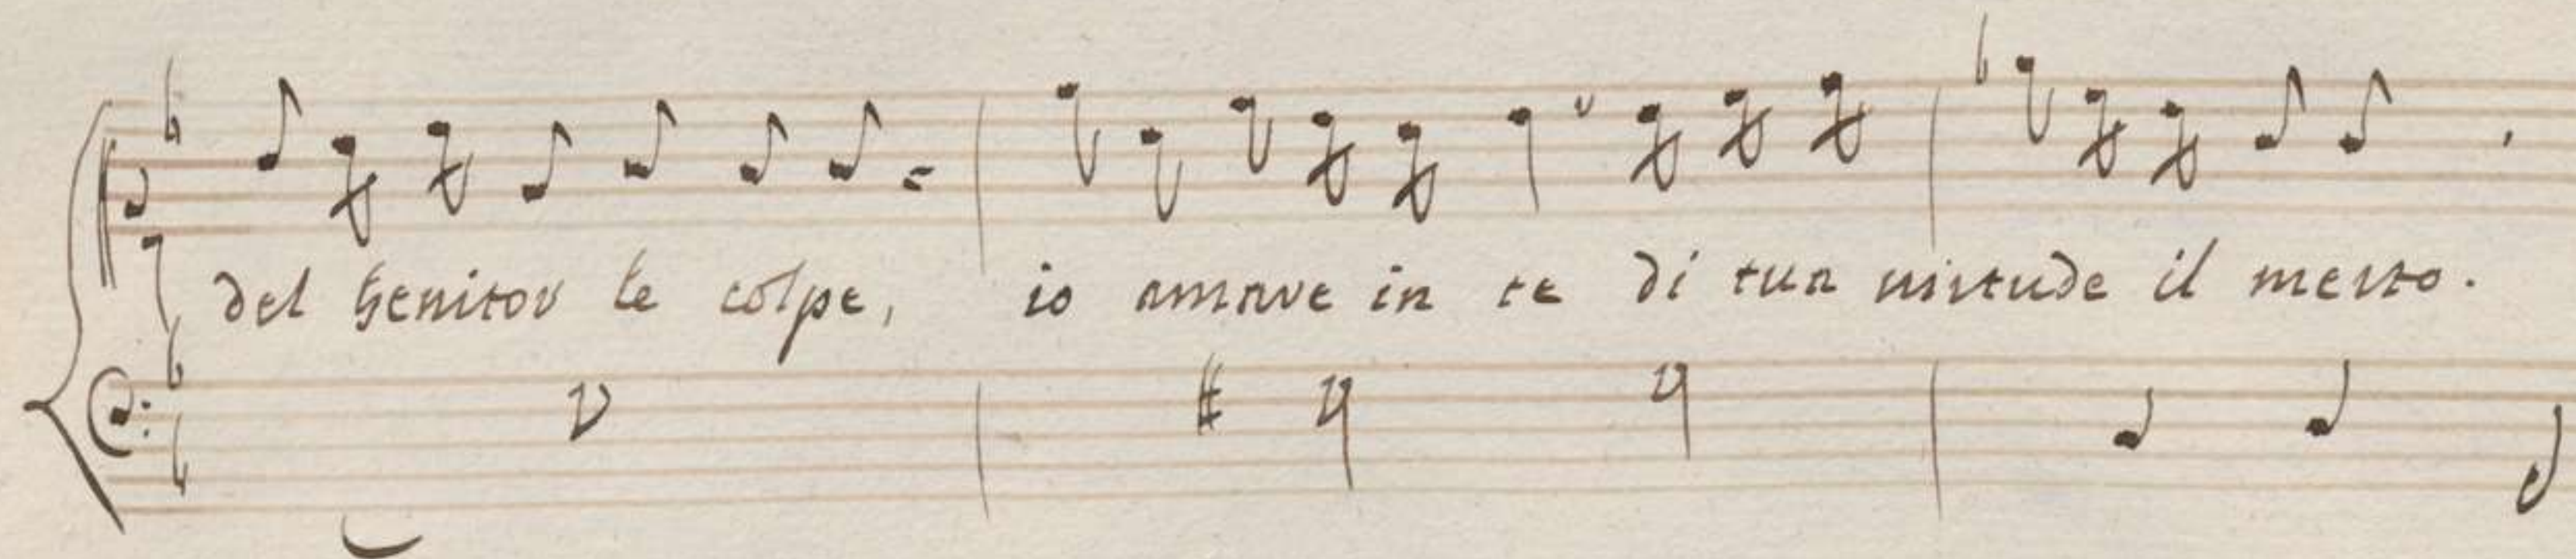 del Genitor le colpe, io amave in te di tua virtude il merto.